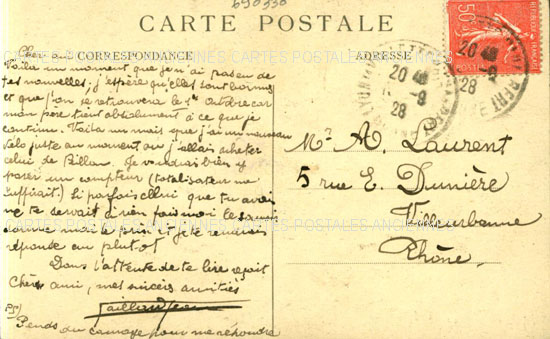 690330
CARTE POSTALE
CORRESPONDANCE
ADRESSE
Cher ami
Voilà un moment que je n'ai pas eu de
tes nouvelles. j'espère qu'elles sont bonnes
et que l'on se retrouvera le 1er Octobre car
mon père tient absolument à ce que je
continu. Voila un mois que j'ai un nouveau
vélo juste au moment où j'allais acheter
celui de Billon. Je voudrais bien y
poser un compteur (totalisateur me
suffirait) si parfois celui que tu avais
ne te servait à rien fais moi le savoir
donne mois le prix et je te rendrais
réponse au plutôt
Dans l'attente de te lire reçoit
Cher ami, mes sincers amitiés
Gaillard Jean
PS)
Prends du courage pour me répondre
Mr A. Laurent
5 rue E. Dunière
Villeurbanne
Rhône.
50c
20
9
28
20
9
28
CARTES POSTALES ANCIENNES